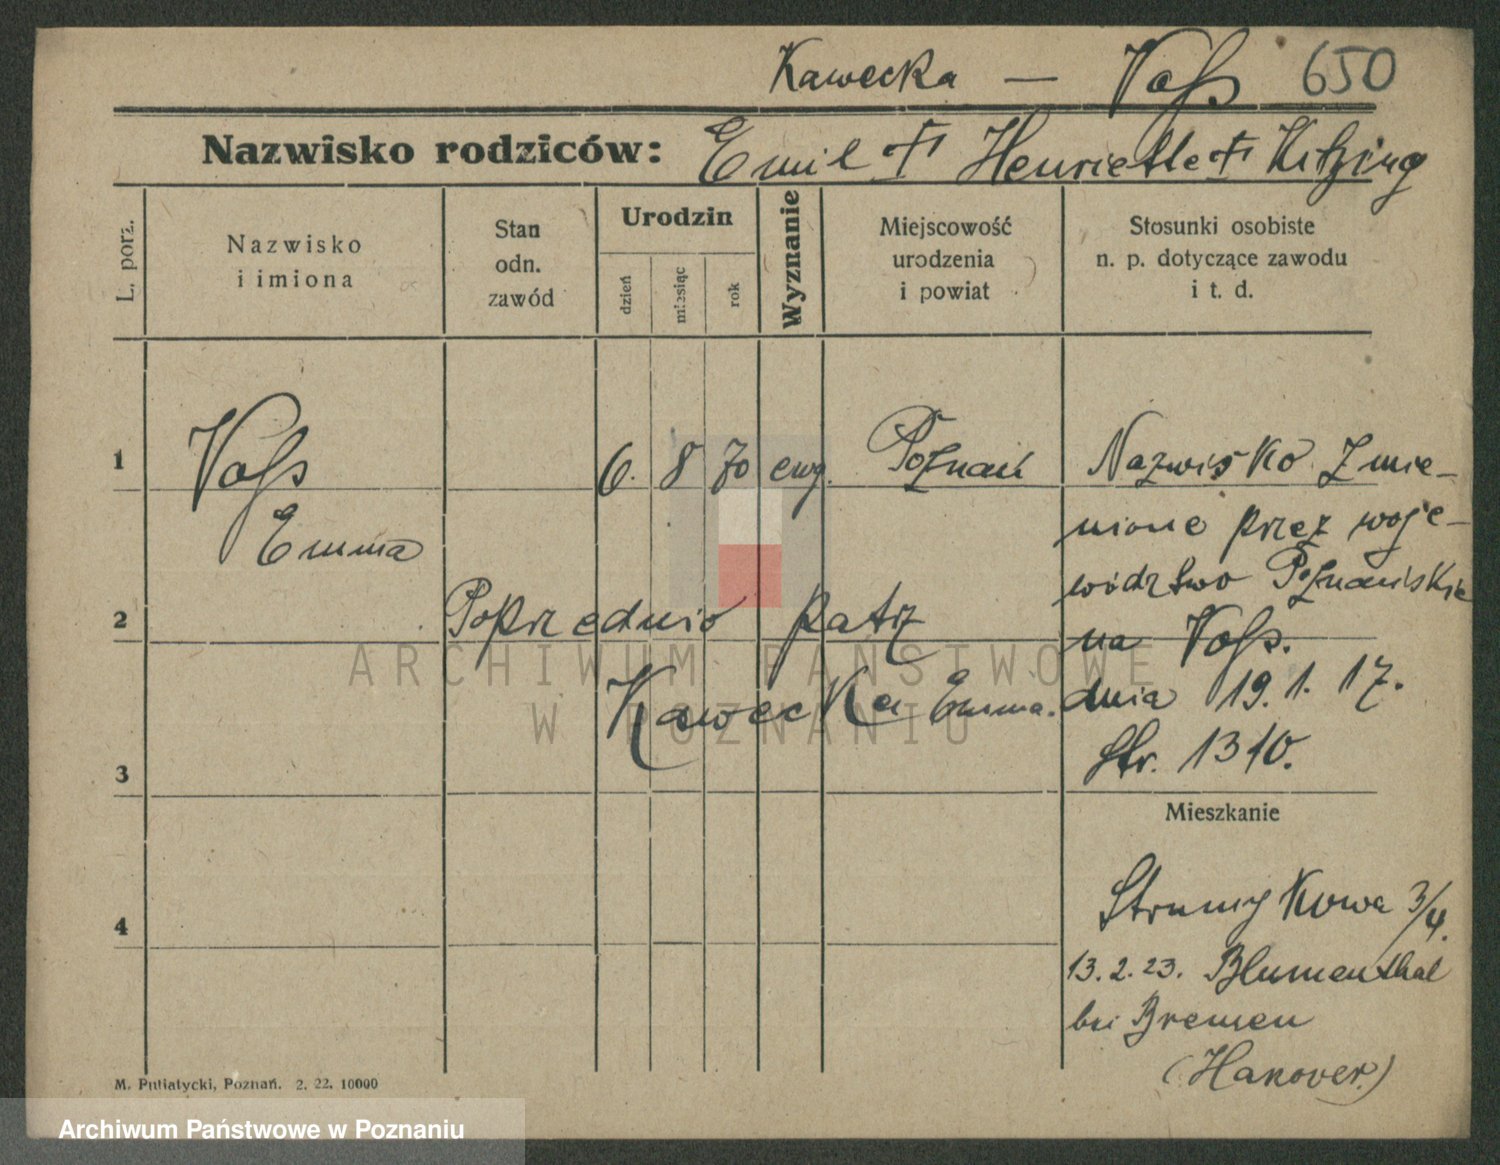 Kawecka — Voß 650
Nazwisko rodziców: Emil † Henriette † Kitzing
L. porz.
Nazwisko
i imiona
Stan
odn.
zawód
Urodzin
dzień
miesiąc
rok
Wyznanie
Miejscowość
urodzenia
i powiat
Stosunki osobiste
n. p. dotyczące zawodu
i t. d.
1 Voß 6. 8 70 ewg. Poznań
Emma
2 Poprzednio patrz
Kawecka Emma.
3
4
Nazwisko zmie-
nione przez woje-
wództwo Poznańskie
na Voß.
dnia 19. 1. 17.
Str. 1310.
Mieszkanie
Strumykowa 3/4.
13. 2. 23. Blumenthal
bei Bremen
(Hanover)
M. Putiatycki, Poznań. 2. 22. 10000
ARCHIWUM PAŃSTWOWE
W POZNANIU
Archiwum Państwowe w Poznaniu